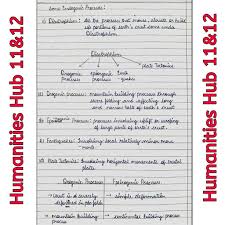 Humanities Hub 11&12
Some Endogenic Process:
① Diastrophism: All the processes that move, elevate or build
up portions of earth's crust come under
Diastrophism.
Diastrophism
Orogenic process
epeirogenic process
Plate Tectonics
(i) Orogenic process: mountain building process through
severe folding and affecting long
and narrow belts of earth's crust.
process: involving uplifting or warping of
large parts of earth's crust.
(iii) Earthquakes: Involving local relatively minor
move-ments.
(iv) Plate Tectonics: Involving horizontal movements of crustal
plates.
Orogenic Process
Epeirogenic Process
→ Crust is severely
deformed into folds
→ simple deformation.
→ mountain building
process
→ continental building process
Humanities Hub 11&12